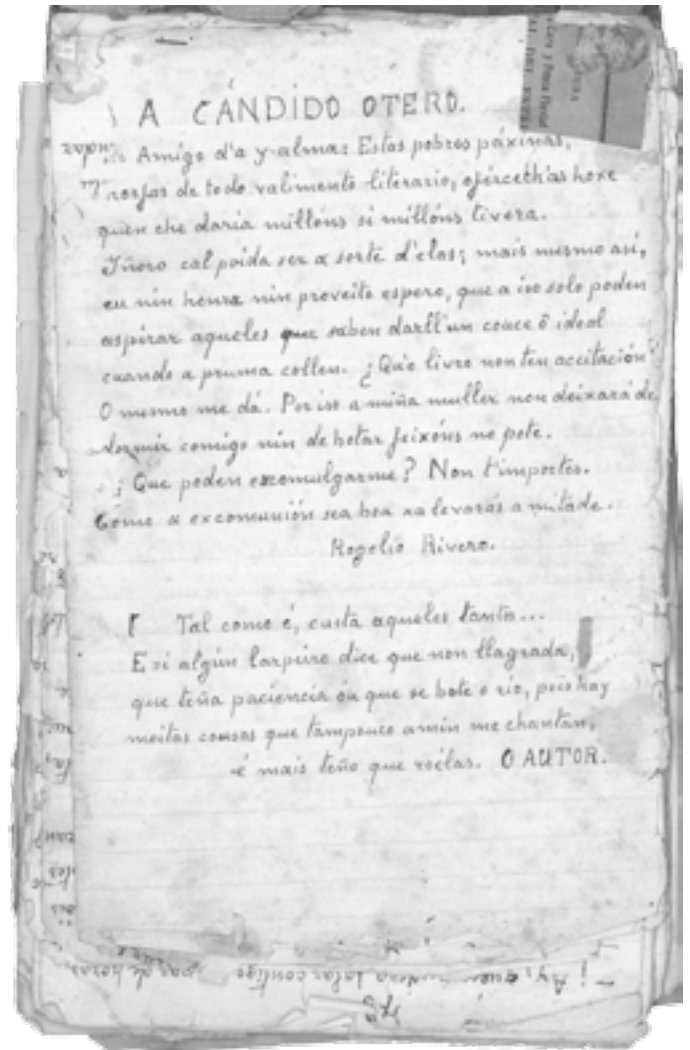 A CÁNDIDO OTERO.
Amigo d'a y-alma: Estas pobres páxinas,
orfas de todo valimento literario, ofércech'as hoxe
quen che daria millóns si millóns tivera.
Iñoro cal poida ser a sorte d'elas; mais mesmo así,
eu nin honra nin proveito espero, que a iso solo poden
aspirar aqueles que saben darll'un couce ô ideal
cuando a pruma collen. ¿Que o livro non ten aceitación?
O mesmo me dá. Por iso a miña muller non deixará de
dormir comigo nin de botar feixóns no pote.
¿Que poden excomulgarme? Non t'importes.
Como a excomunión sea boa xa levarás a mitade.
Rogelio Rivero.
Tal como é, custa aqueles tantos...
E si algún larpeiro dice que non ll'agrada,
que teña paciencia ou que se bote o rio, pois hay
moitas cousas que tampouco a min me chantan,
é mais teño que roélas. O AUTOR.
¡Ay, quen pudera falar contigo par de horas,